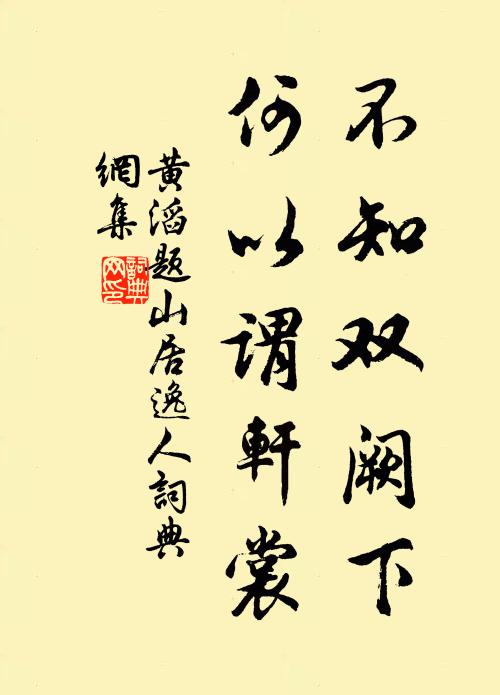 不知双阙下
何以谓軒裳
黄滔题山居逸人詞典
網集
詞典